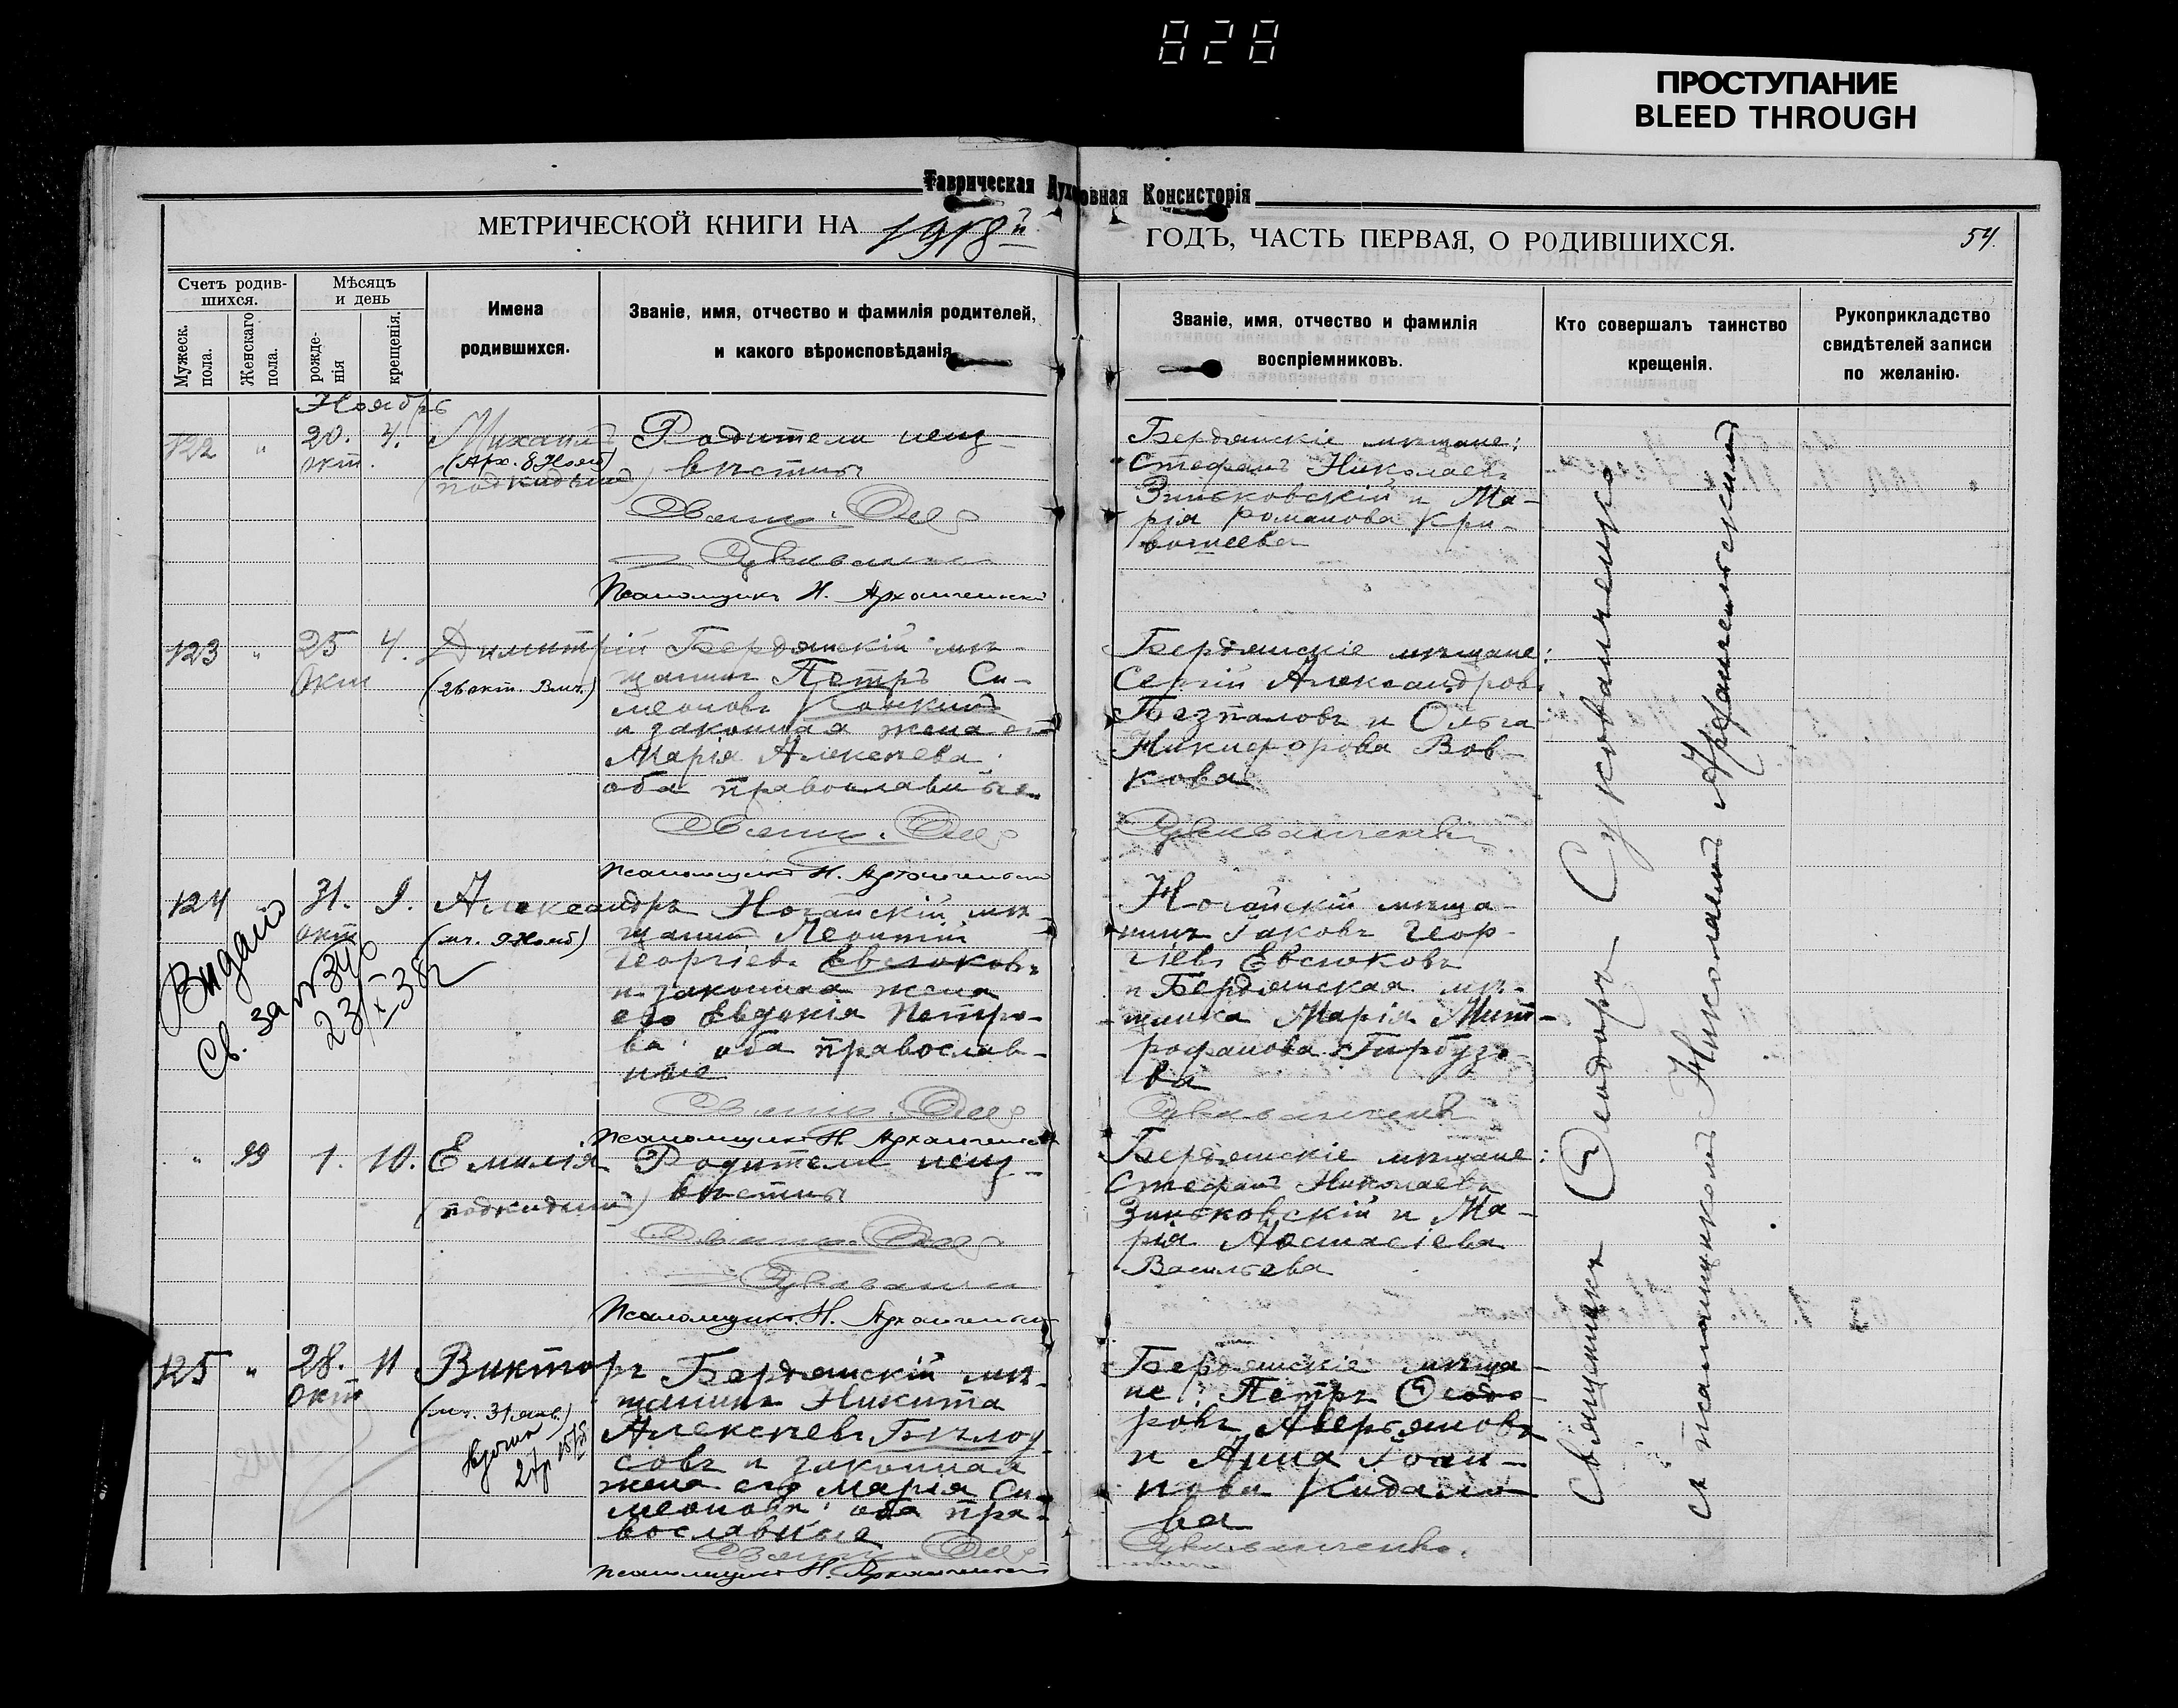 828
ПРОСТУПАНИЕ
BLEED THROUGH
Таврическая Духовная Консисторія
МЕТРИЧЕСКОЙ КНИГИ НА 1918й ГОДЪ, ЧАСТЬ ПЕРВАЯ, О РОДИВШИХСЯ.
54.
Счетъ родив-
шихся.
Мужеск.
пола.
Женскаго
пола.
Мѣсяцъ
и день
рожде-
нія
крещенія.
Имена
родившихся.
Званіе, имя, отчество и фамилія родителей,
и какого вѣроисповѣданія.
Званіе, имя, отчество и фамилія
воспріемниковъ.
Кто совершалъ таинство
крещенія.
Рукоприкладство
свидѣтелей записи
по желанію.
Ноябрь
122 " 20. 4. Михаилъ
окт.
(Арх. 8 Нояб)
(подкидышъ)
Родители неиз-
вѣстны
Псаломщикъ Н. Архангельскій
Бердянскіе мѣщане:
Стефанъ Николаевъ
Зиньковскій и Ма-
рія Романова Кри-
вошеева
123 " 25 4. Димитрій
окт
(26 окт. Влмч.)
Бердянскій мѣ-
щанинъ Петръ Си-
меоновъ
и законная жена его
Марія Алексѣева:
оба православные.
Псаломщикъ Н. Архангельскій
Бердянскіе мѣщане:
Сергій Александровъ
Безпаловъ и Ольга
Никифорова Вов-
кова
124 31. 9. Александръ
окт
(мч. 9 Нояб)
Видано
Св. за № 340
23/X-38
Ногайскій мѣ-
щанинъ Леонтій
Георгіевъ Евсюковъ
и законная жена
его Евдокія Петро-
ва: оба православ-
ные
Псаломщикъ Н. Архангельскій
Ногайскій мѣща-
нинъ Іаковъ Геор-
гіевъ Евсюковъ
и Бердянская мѣ-
щанка Марія Мит-
рофанова Гарбузо-
ва
" 99 1. 10. Емилія
(подкидышъ)
Родители неиз-
вѣстны
Псаломщикъ Н. Архангельскій
Бердянскіе мѣщане:
Стефанъ Николаевъ
Зиньковскій и Ма-
рія Аѳанасіева
Васильева
125 " 28. 11 Викторъ
окт
(мч. 31 янв.)
Бердянскій мѣ-
щанинъ Никита
Алексѣевъ Бѣлоу-
совъ и законная
жена его Марія Си-
меонова: оба пра-
вославные
Псаломщикъ Н. Архангельскій
Бердянскіе мѣща-
не: Петръ Ѳеодо-
ровъ Аверьяновъ
и Анна Іоан-
нова Кидало-
ва
Священникъ Ѳеодоръ
съ псаломщикомъ Николаемъ Архангельскимъ